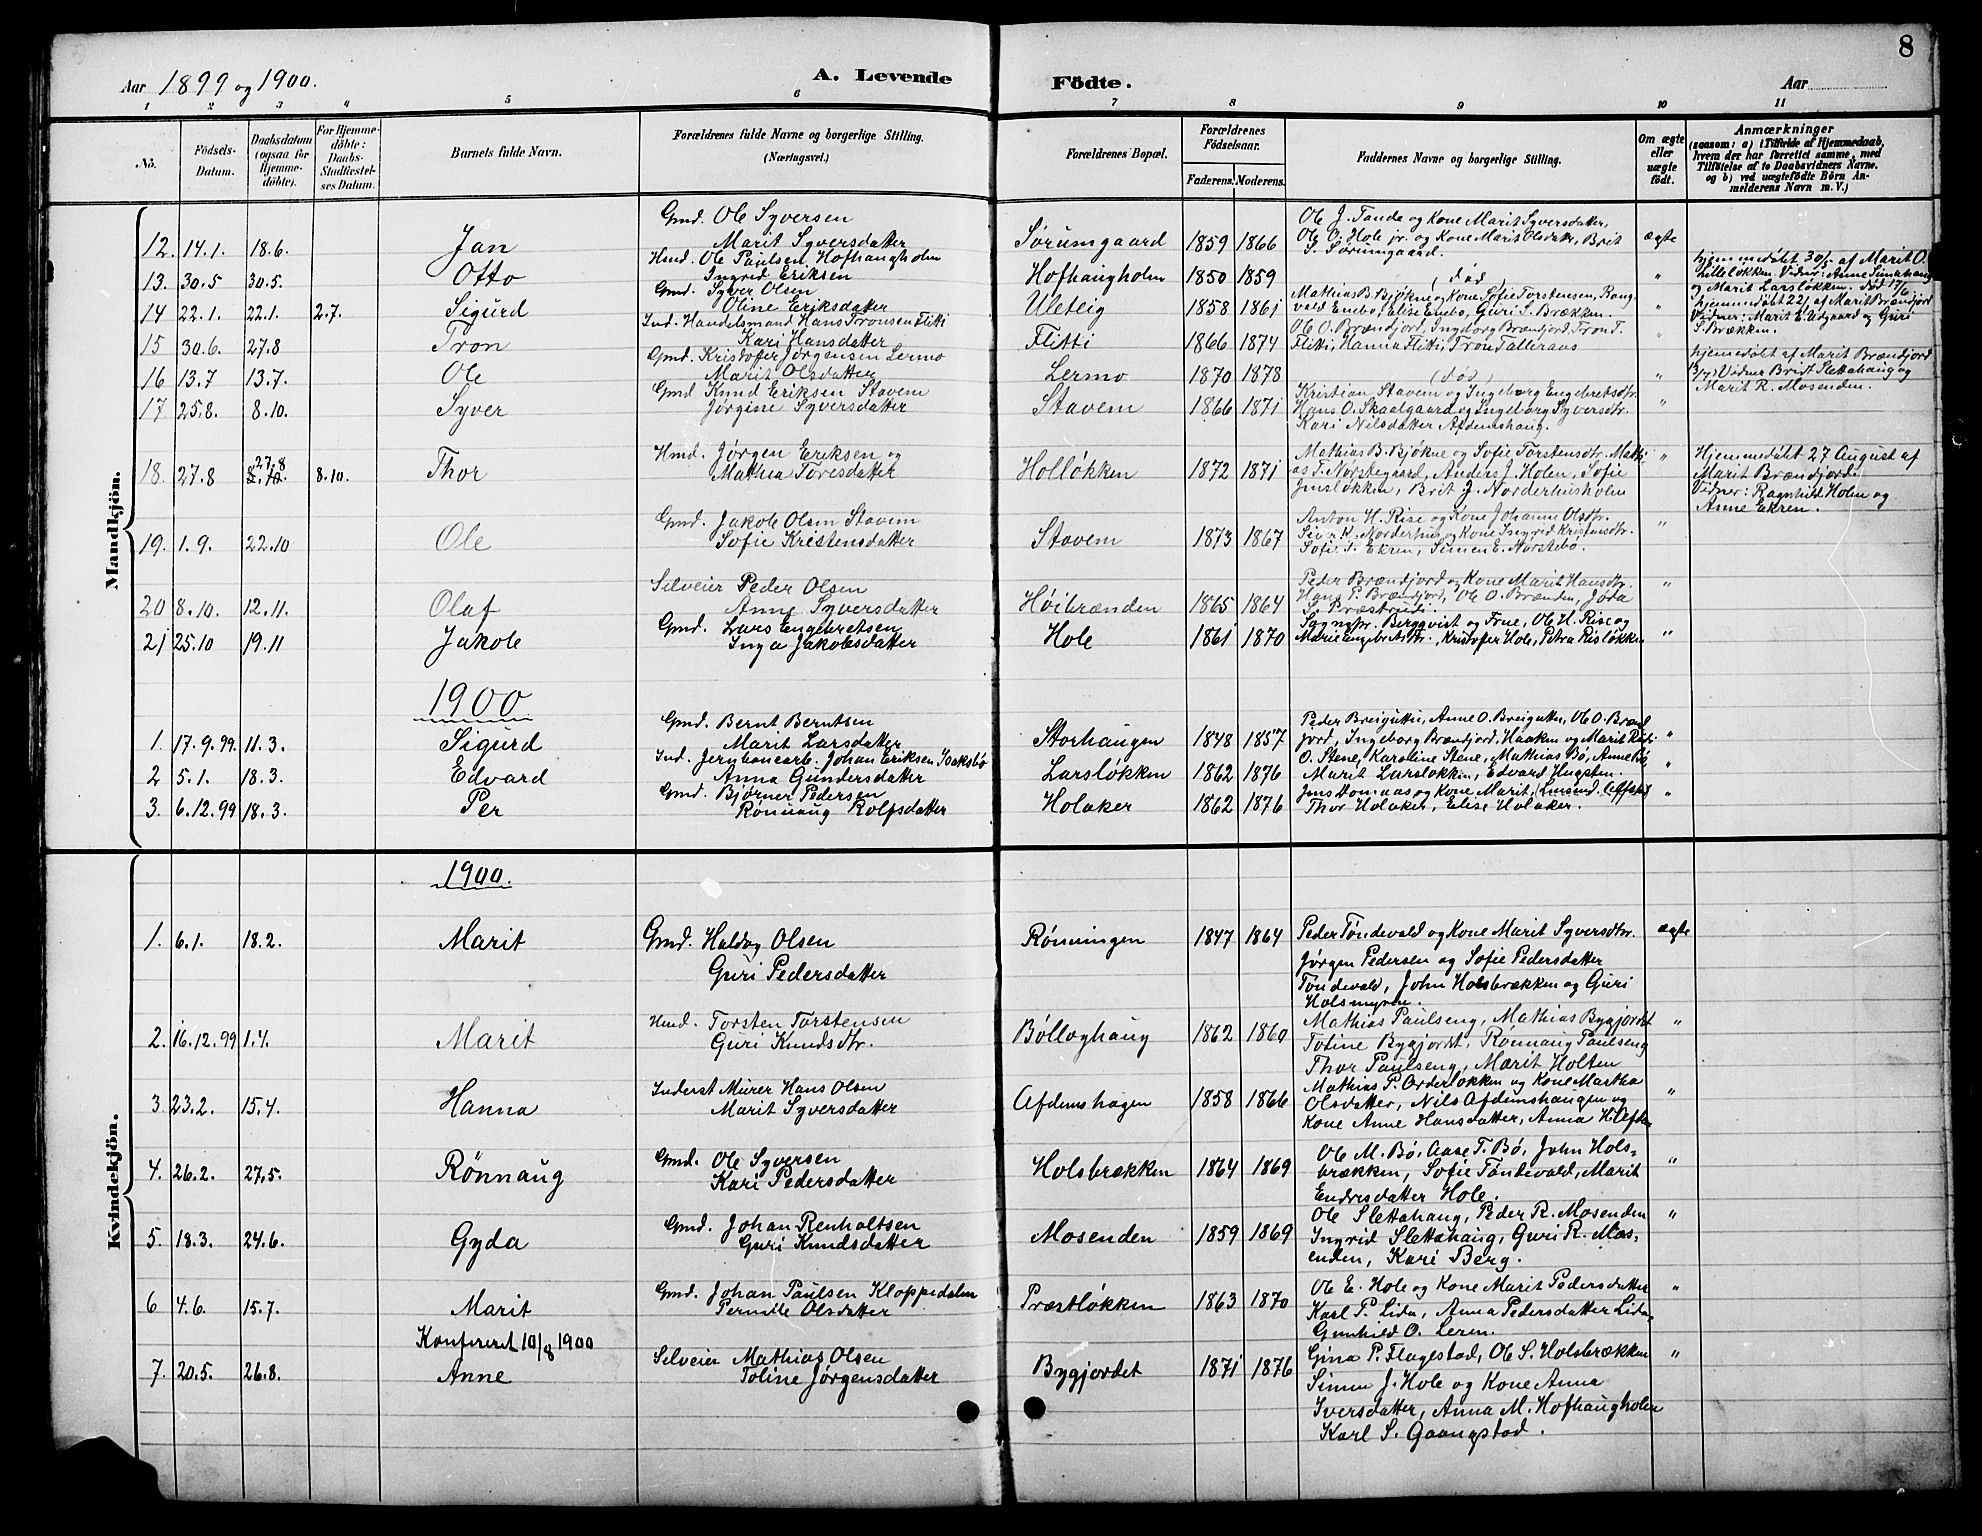 8
Aar 1899 og 1900.
A. Levende Födte.
Aar
1 2 3 " 5 6 7 8 9 10 11
No.
Födsels-Datum.
Daabsdatum (ogsaa for Hjemme-döbte).
For Hjemme-döbte: Daabs-Stadfæstel-ses Datum.
Barnets fulde Navn.
Forældrenes fulde Navne og borgerlige Stilling.
(Næringsvei.)
Forældrenes Bopæl.
Forældrenes Födselsaar.
Faderens. Moderens.
Faddernes Navne og borgerlige Stilling.
Om ægte eller uægte födt.
Anmærkninger
(saasom: a) i Tilfælde af Hjemmedaab, hvem der har forrettet samme, med Tilföielse af to Daabsvidners Navne. og b) ved uægtefödte Börn Anmelderens Navn m. V.)
Mandkjön.
12. 14.1. 18.6. Jan
Gmd. Ole Syversen
Marit Syversdatter
Sørumgaard 1859 1866
Ole J. Tande og Kone Marit Syversdatter,
Ole O. Hole jr. og Kone Marit Olsdatter, Brit
S. Sørumgaard.
ægte
13. 30.5 30.5. Otto
Hmd. Ole Paulsen Hofhaugholm
Ingrid Eriksen
Hofhaugholm 1850 1859
(død)
"
hjemmedøbt 30/5 af Marit O.
Lilleløkken. Vidner: Anne
og Marit Larsløkken. Død 17/6
14 22.1. 22.1. 2.7. Sigurd
Gmd. Syver Olsen
Oline Eriksdatter
Uleteig 1858 1861
Mathias B. Bjøkne og Kone Sofie Torstensen, Rang-
vald Embo, Elise Embo, Guri S. Brækken.
"
hjemmedøbt 22/1 af Marit Brændjord
Vidner: Marit E. Udgaard og Guri
S. Brækken.
15 30.6. 27.8 Tron
Ind. Handelsmand Hans Tronsen Flitti
Kari Hansdatter
Flitti 1866 1874
Ole O. Brændjord, Ingeborg Brændjord, Tron T.
Flitti, Hanna Flitti, Tron Talleraas
"
16 13.7 13.7. Ole
Gmd. Kristofer Jørgensen Lermo
Marit Olsdatter
Lermo 1870 1878
(død)
"
hjemmedøbt af Marit Brændjord
13/7) Vidner Brit Slettahaug og
Marit R. Mosenden.
17 25.8. 8.10. Syver
Gmd Knud Eriksen Stavem
Jørgine Syversdatter
Stavem 1866 1871
Kristian Stavem og Ingeborg Engebretsdtr.
Hans O. Skaalgaard og Ingeborg Syversdtr.
Kari Nilsdatter Afdemshaug.
"
18. 27.8 27.8 8.10. 8.10. Thor
Hmd. Jørgen Eriksen og
Mathea Toresdatter
Holløkken 1872 1871
Mathias B. Bjøkne og Sofie Torstensdtr. Mathi-
as T. Norstegaard, Anders J. Holen, Sofie
Jensløkken, Brit J. Norderhusholm
"
Hjemmedøbt 27 August af
Marit Brændjord.
Vidner: Ragnhild Holen og
Anne Ekren.
19. 1.9. 22.10 Ole
Gmd. Jakob Olsen Stavem
Sofie Kristensdatter
Stavem 1873 1867
Anton H. Rise og Kone Johanne Olsdtr.
Siver K. Norderhus og Kone Ingrid Kristensdtr.
Sofie S. Ekren, Simen E. Norstebø.
"
20 8.10. 12.11. Olaf
Selveier Peder Olsen
Anne Syversdatter
Høibrænden 1865 1864
Peder Brændjord og Kone Marit Hansdtr.
Hans P. Brændjord, Ole O. Brænden, Joda
S. Præstrudi.
"
21 25.10 19.11 Jakob
Gmd. Lars Engebretsen
Inga Jakobsdatter
Hole 1861 1870
Sognepr. Bergqvist og Frue, Ole H. Rise og
Marie Engebretsdtr., Kristofer Hole, Petra Risløkken
"
1900
1. 17.9.99. 11.3. Sigurd
Gmd. Bernt Berntsen
Marit Larsdatter
Storhaugen 1848 1857
Peder Breigutter, Anne O. Breigutter, Ole O. Brænd-
jord, Ingeborg Brændjord, Haaken og Marit
"
2 5.1. 18.3. Edvard
Ind. Jernbanearb. Johan Eriksen Isaksbø
Anna Gundersdatter
Larsløkken 1862 1876
O. Stene, Karoline Stene, Mathias Bø, Anne Bø,
Marit Larsløkken, Edvard Haugsten.
"
3. 6.12.99 18.3. Per
Gmd. Bjørner Pedersen
Rønnaug Rolfsdatter
Holaker 1862 1876
Jens Domaas og Kone Marit,
Thor Holaker, Elise Holaker.
"
Kvindekjön.
1900.
1. 6.1. 18.2. Marit
Gmd. Haldog Olsen
Guri Pedersdatter
Rønningen 1847 1864
Peder Tøndevold og Kone Marit Syversdtr.
Jørgen Pedersen og Sofie Pedersdatter
Tøndevold, John Holsbrækken og Guri
Holsmyren.
ægte
2. 16.12.99 1.4. Marit
Hmd. Torsten Torstensen
Guri Knudsdtr.
Bølloghaug 1862 1860
Mathias Paulseng, Mathias Bygjordet
Totine Bygjordet, Rønnaug Paulseng
Thor Paulseng, Marit Holten
"
3 23.2. 15.4. Hanna
Inderst Murer Hans Olsen
Marit Syversdatter
Afdemshagen 1858 1866
Mathias P. Orderløkken og Kone Martha
Olsdatter, Nils Afdemshaugen og
Kone Anne Hansdatter, Anna H. Afdem
"
4. 26.2. 27.5. Rønnaug
Gmd. Ole Syversen
Kari Pedersdatter
Holsbrækken 1864 1869
Ole M. Bø, Aase T. Bø, John Hols-
brækken, Sofie Tøndevold, Marit
Endresdatter Hole.
"
5. 18.3. 24.6. Gyda
Gmd. Johan Renholtsen
Guri Knudsdatter
Mosenden 1859 1869
Ole Slettahaug, Peder R. Mosenden
Ingrid Slettahaug, Guri R. Mos-
enden, Kari Berg.
"
6 4.6. 15.7. Marit
Gmd. Johan Paulsen Kloppedalen
Pernille Olsdatter
Præstløkken 1863 1870
Ole E. Hole og Kone Marit Pedersdatter
Karl P. Lida, Anna Pedersdatter Lida,
Gunhild O. Leren.
"
Konfereret 10/8 1900
7. 20.5. 26.8. Anne
Selveier Mathias Olsen
Toline Jørgensdatter
Bygjordet 1871 1876
Gina P. Flagestad, Ole S. Holsbrækken
Simen J. Hole og Kone Anna
Iversdatter, Anna M. Hofhaugholen
Karl S. Gaangstad.
"